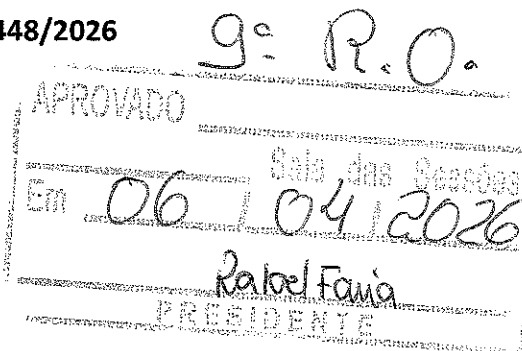 448/2026
9ª R.O.
APROVADO
Sala das Sessões
Em 06 / 04 / 2026
Rafael Faria
PRESIDENTE